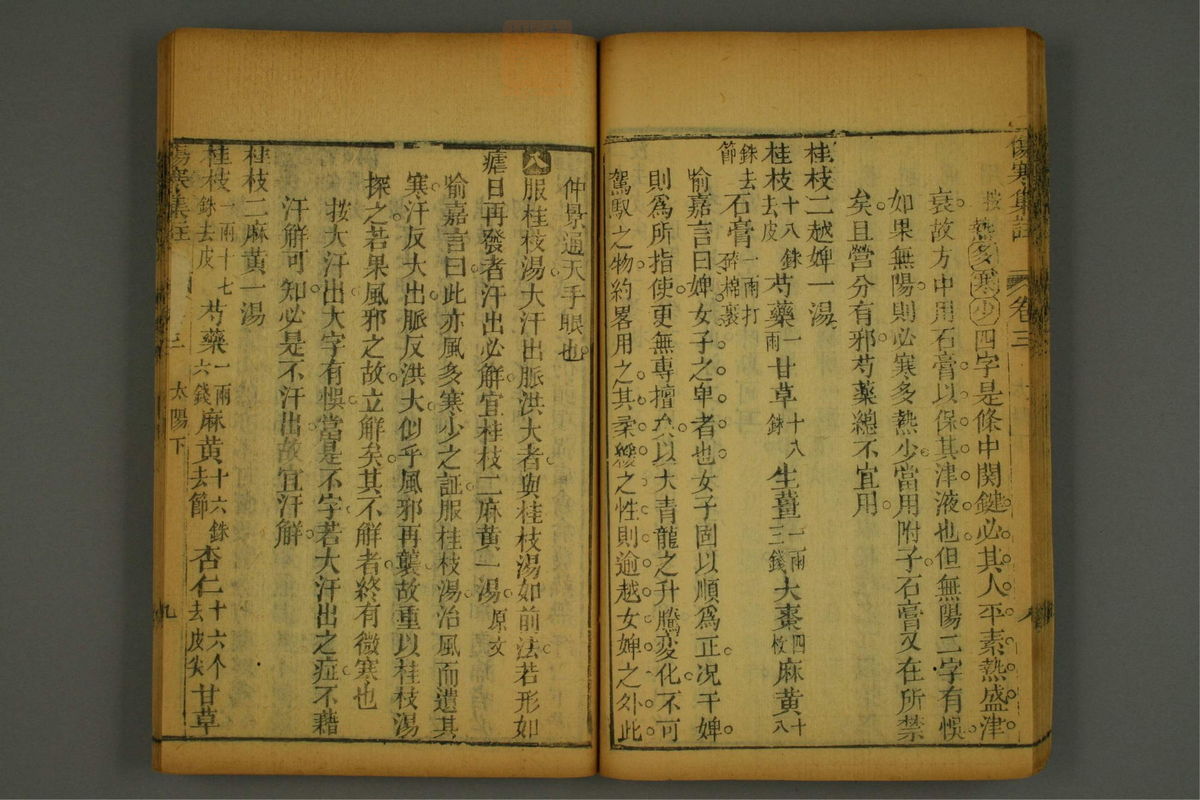 傷寒集註 卷三
按熱多寒少四字是條中関鍵必其人平素熱盛津
衰故方中用石膏以保其津液也但無陽二字有悞
如果無陽則必寒多熱少當用附子石膏又在所禁
矣且營分有邪芍藥總不宜用
桂枝二越婢一湯
桂枝十八銖去皮芍藥一兩甘草十八銖生薑一兩三錢大棗四枚麻黃十八
銖去節石膏一兩打碎棉裹
喻嘉言曰婢女子之卑者也女子固以順為正况于婢
則為所指使更無專擅矣以大青龍之升騰变化不可
駕馭之物約畧用之其柔緩之性則逾越女婢之外此
仲景通天手眼也
八服桂枝湯大汗出脈洪大者與桂枝湯如前法若形如
瘧日再發者汗出必觧宜桂枝二麻黃一湯原文
喻嘉言曰此亦風多寒少之証服桂枝湯治風而遺其
寒汗反大出脈反洪大似乎風邪再襲故重以桂枝湯
探之若果風邪之故立觧矣其不觧者終有微寒也
按大汗出大字有悞當是不字若大汗出之症不藉
汗觧可知必是不汗出故宜汗觧
桂枝二麻黃一湯
桂枝一兩十七銖去皮芍藥一兩六錢麻黃十六銖去節杏仁十六个去皮尖甘草
傷寒集註 三 太陽下 九